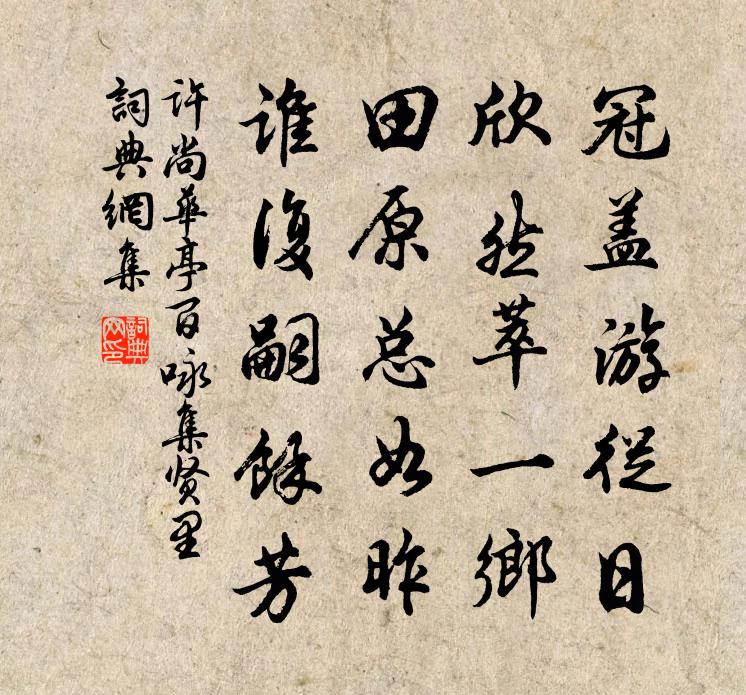 冠盖游從日
欣然萃一鄉
田原总如昨
誰復嗣餘芳
許尚華亭百咏集贤里
詞典網集
詞典網印